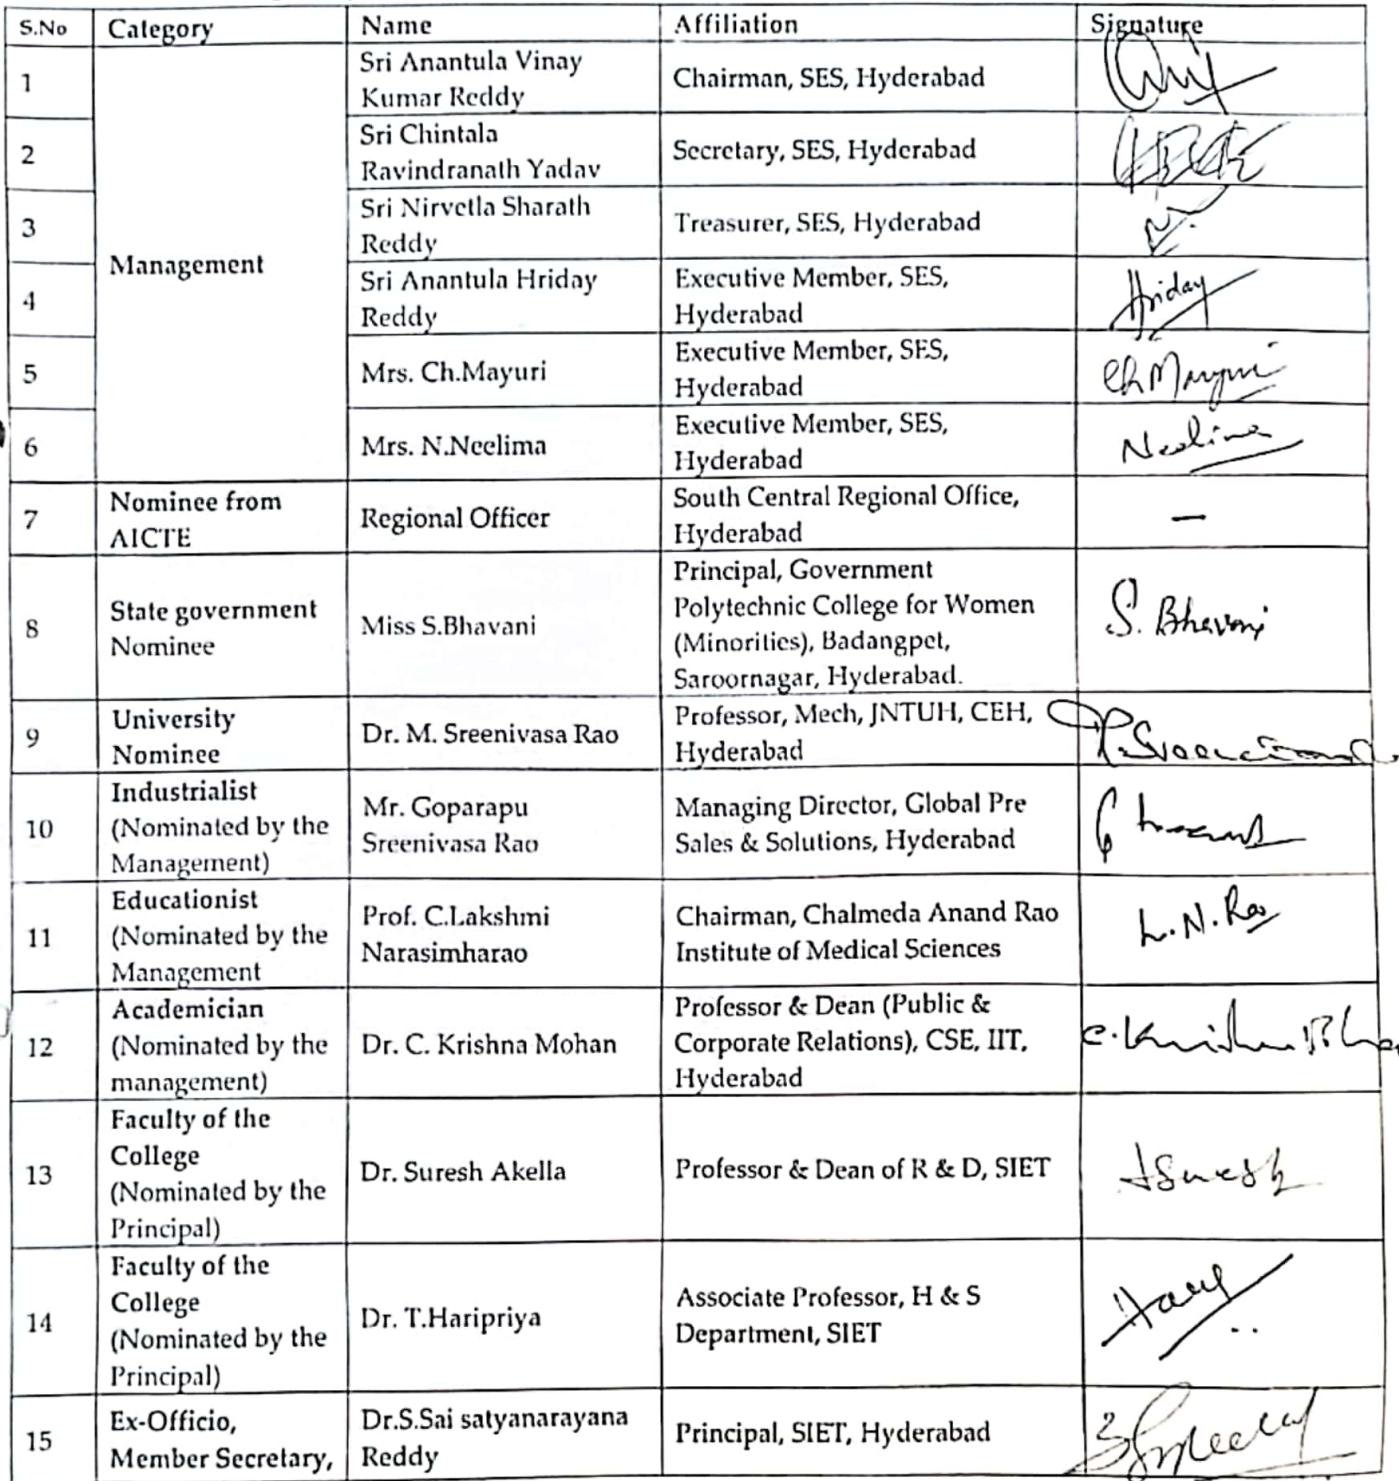 S.No Category Name Affiliation Signature
1 Sri Anantula Vinay
Kumar Reddy Chairman, SES, Hyderabad
2 Sri Chintala
Ravindranath Yadav Secretary, SES, Hyderabad
3 Sri Nirvetla Sharath
Reddy Treasurer, SES, Hyderabad
Management
4 Sri Anantula Hriday
Reddy Executive Member, SES,
Hyderabad Hriday
5 Mrs. Ch.Mayuri Executive Member, SES,
Hyderabad Ch Mayuri
6 Mrs. N.Neelima Executive Member, SES,
Hyderabad Neelima
7 Nominee from
AICTE Regional Officer South Central Regional Office,
Hyderabad —
8 State government
Nominee Miss S.Bhavani Principal, Government
Polytechnic College for Women
(Minorities), Badangpet,
Saroornagar, Hyderabad. S. Bhavani
9 University
Nominee Dr. M. Sreenivasa Rao Professor, Mech, JNTUH, CEH,
Hyderabad
10 Industrialist
(Nominated by the
Management) Mr. Goparapu
Sreenivasa Rao Managing Director, Global Pre
Sales & Solutions, Hyderabad
11 Educationist
(Nominated by the
Management Prof. C.Lakshmi
Narasimharao Chairman, Chalmeda Anand Rao
Institute of Medical Sciences L.N.Rao
12 Academician
(Nominated by the
management) Dr. C. Krishna Mohan Professor & Dean (Public &
Corporate Relations), CSE, IIT,
Hyderabad
13 Faculty of the
College
(Nominated by the
Principal) Dr. Suresh Akella Professor & Dean of R & D, SIET
14 Faculty of the
College
(Nominated by the
Principal) Dr. T.Haripriya Associate Professor, H & S
Department, SIET
15 Ex-Officio,
Member Secretary, Dr.S.Sai satyanarayana
Reddy Principal, SIET, Hyderabad